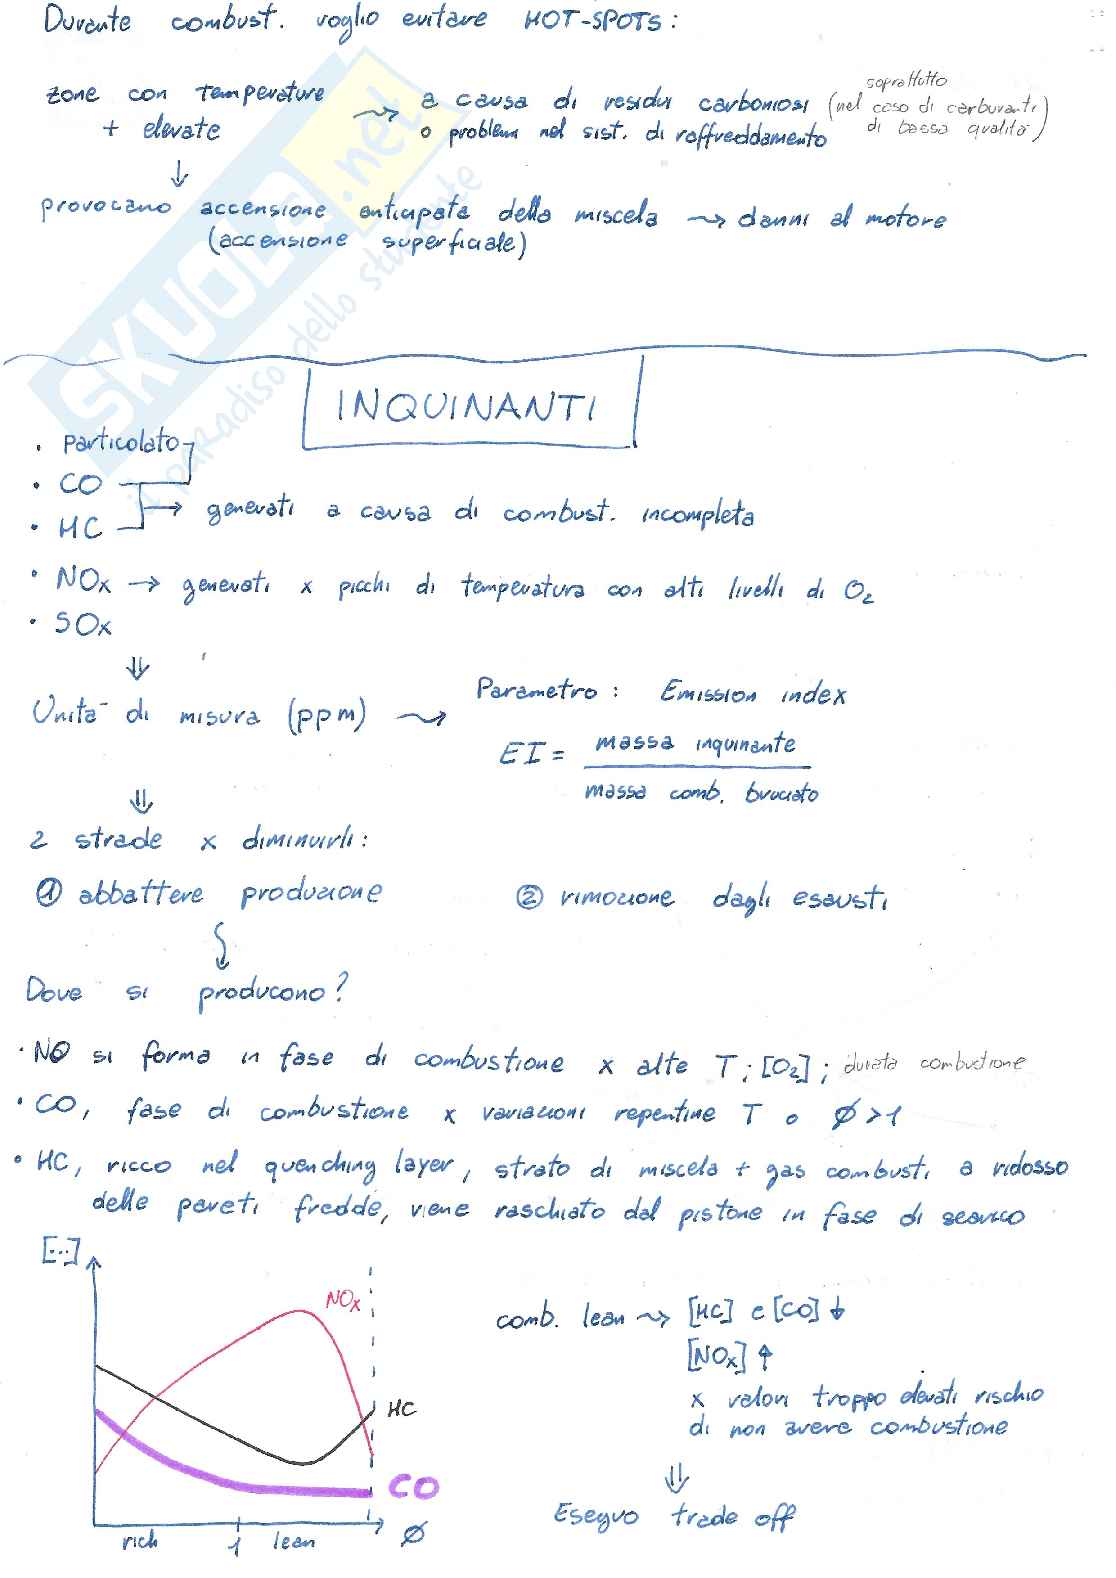 Durante combust. voglio evitare HOT-SPOTS:
zone con temperature
+ elevate
a causa di residui carboniosi (nel caso di carburanti di bassa qualità)
soprattutto
o problemi nel sist. di raffreddamento
provocano accensione anticipata della miscela ⤳ danni al motore
(accensione superficiale)
SKUOLA.net
il paradiso dello studente
INQUINANTI
• Particolato
• CO
• HC
→ generati a causa di combust. incompleta
• NOx → generati x picchi di temperatura con alti livelli di O2
• SOx
⇓
Unità di misura (ppm) ⤳
Parametro: Emission index
EI = massa inquinante
massa comb. bruciato
⇓
2 strade x diminuirli:
① abbattere produzione
② rimozione dagli esausti
Dove si producono?
• NO si forma in fase di combustione x alte T; [O2]; durata combustione
• CO, fase di combustione x variazioni repentine T o Ø>1
• HC, ricco nel quenching layer, strato di miscela + gas combusti a ridosso
delle pareti fredde, viene raschiato dal pistone in fase di scarico
[...]
NOx
HC
CO
rich 1 lean Ø
comb. lean ⤳ [HC] e [CO] ↓
[NOx] ↑
x valori troppo elevati rischio
di non avere combustione
⇓
Eseguo trade off